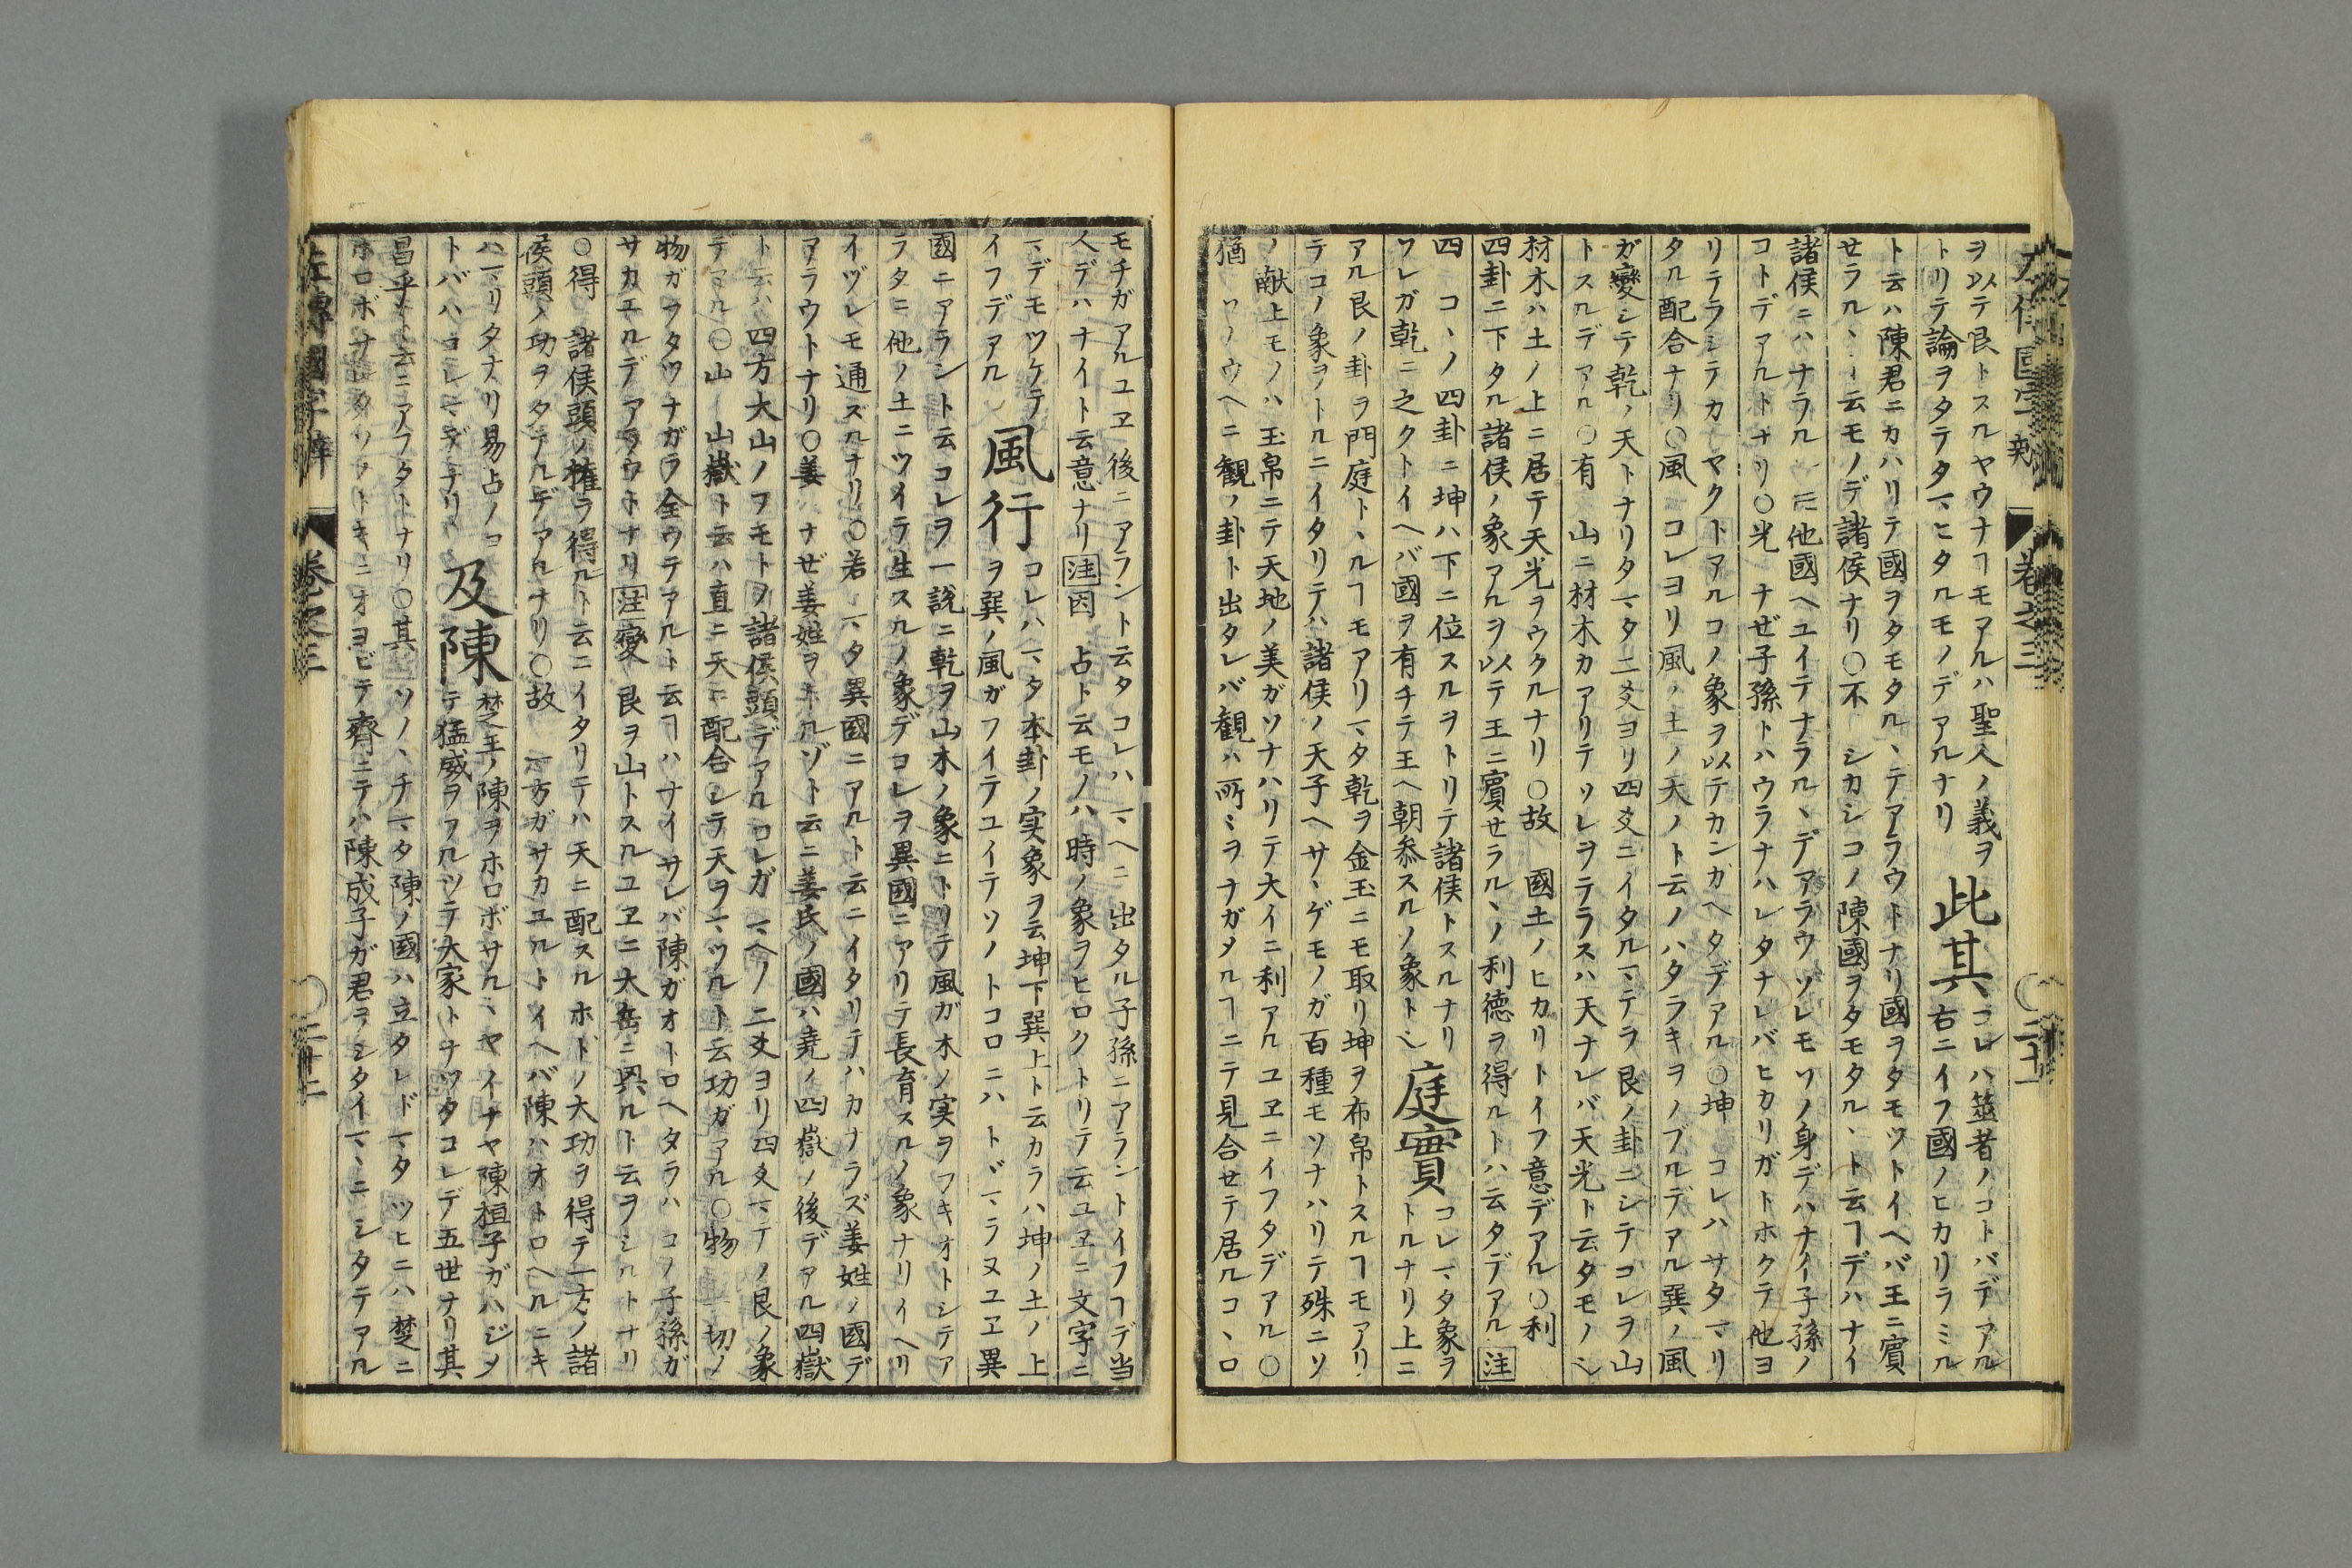 ヲ以テ艮トスルヤウナヿモアルハ聖人ノ義ヲ
トリテ論ヲタテタマヒタルモノデアルナリ
此其
コレハ筮者ノコトバデアル
右ニイフ國ノヒカリヲミル
ト云ハ陳君ニカハリテ國ヲタモタル、テアラウトナリ國ヲタモツトイヘバ王ニ賓
セラル、ト云モノデ諸侯ナリ○不 シカシコノ陳國ヲタモタル、ト云ヿデハナイ
諸侯ニハナラル 他國ヘユイテナラル、デアラウソレモソノ身デハナイ子孫ノ
コトデアルトナリ○光 ナゼ子孫トハウラナハレタナレバヒカリガトホクテ他ヨ
リテラシテカ ヤクトアルコノ象ヲ以テカンガヘタデアル○坤 コレハサタマリ
タル配合ナリ○風 コレヨリ風ノ土ノ天ノト云ノハタラキヲノブルデアル巽ノ風
ガ變シテ乾ノ天トナリタマタ二爻ヨリ四爻ニイタルマテヲ艮ノ卦ニシテコレヲ山
トスルデアル○有 山ニ材木カアリテソレヲテラスハ天ナレバ天光ト云タモノ
材木ハ土ノ上ニ居テ天光ヲウクルナリ○故 國土ノヒカリトイフ意デアル○利
四卦ニ下タル諸侯ノ象アルヲ以テ王ニ賓セラル、ノ利徳ヲ得ルトハ云タデアル 注
四 コ、ノ四卦ニ坤ハ下ニ位スルヲトリテ諸侯トスルナリ
庭實
コレマタ象ヲ
トルナリ上ニ
ソレガ乾ニ之クトイヘバ國ヲ有チテ王ヘ朝参スルノ象ト
アル艮ノ卦ヲ門庭ト、ルヿモアリマタ乾ヲ金玉ニモ取リ坤ヲ布帛トスルヿモアリ
テコノ象ヲトルニイタリテハ諸侯ノ天子ヘサ、ゲモノガ百種モソナハリテ殊ニソ
ノ献上モノハ玉帛ニテ天地ノ美ガソナハリテ大イニ利アルユヱニイフタデアル○
猶 ソノウヘニ観ノ卦ト出タレバ観ハ所ミヲナガメルヿニテ見合セテ居ルコ、ロ
モチガアルユヱ後ニアラント云タコレハマヘニ出タル子孫ニアラントイフヿデ当
人デハナイト云意ナリ 注 因 占ト云モノハ時ノ象ヲヒロクトリテ云ユヱニ文字ニ
マデモツケテ
イフデアル
風行
コレハマタ本卦ノ実象ヲ云坤下巽上ト云カラハ坤ノ土ノ上
ヲ巽ノ風ガフイテユイテソノトコロニハトヾマラヌユエ異
國ニアラシト云コレヲ一説ニ乾ヲ山木ノ象ニトリテ風ガ木ノ実ヲフキオトシテア
ラタニ他ノ土ニツイテ生スルノ象デコレヲ異國ニアリテ長育スルノ象ナリイヘリ
イヅレモ通ズルナリ○若 マタ異國ニアルト云ニイタリテハカナラズ姜姓ノ國デ
アラウトナリ○姜 ナゼ姜姓ヲ ルゾト云ニ姜氏ノ國ハ堯ノ四嶽ノ後デアル四嶽
ト云ハ四方大山ノフモトヲ諸侯頭デアルコレガマヘノ二爻ヨリ四爻マデノ艮ノ象
デアル○山 山嶽ト云ハ直ニ天ニ配合シテ天ヲマツルト云功ガアル○物 一切ノ
物ガフタツナガラ全ウテアルト云ヿハナイサレバ陳ガオトロヘタラハコノ子孫ガ
サカエルデアラウトナリ 注 變 艮ヲ山トスルユヱニ大岳ニ興ルト云ヲシルトナリ
○得 諸侯頭ノ権ヲ得ルト云ニイタリテハ天ニ配スルホドノ大功ヲ得テ一方ノ諸
侯頭ノ功ヲタテルデアルナリ○故 一方ガサカユルトイヘバ陳ハオトロヘルニキ
ハマリタナリ易占ノコ
トバハコレマデナリ
及陳
楚王ノ陳ヲホロボサル、ヤイナヤ陳桓子ガハジメ
テ猛威ヲフルツテ大家トナツタコレデ五世ナリ其
昌乎ト云ニアフタトナリ○其 ソノ、チマタ陳ノ國ハ立タレドマタツヒニハ楚ニ
ホロボサレタソノトキニオヨビテ齊ニテハ陳成子ガ君ヲシタイマ、ニシタテアル
左傳國字辯 巻之三 二十二
巻之三 二十一